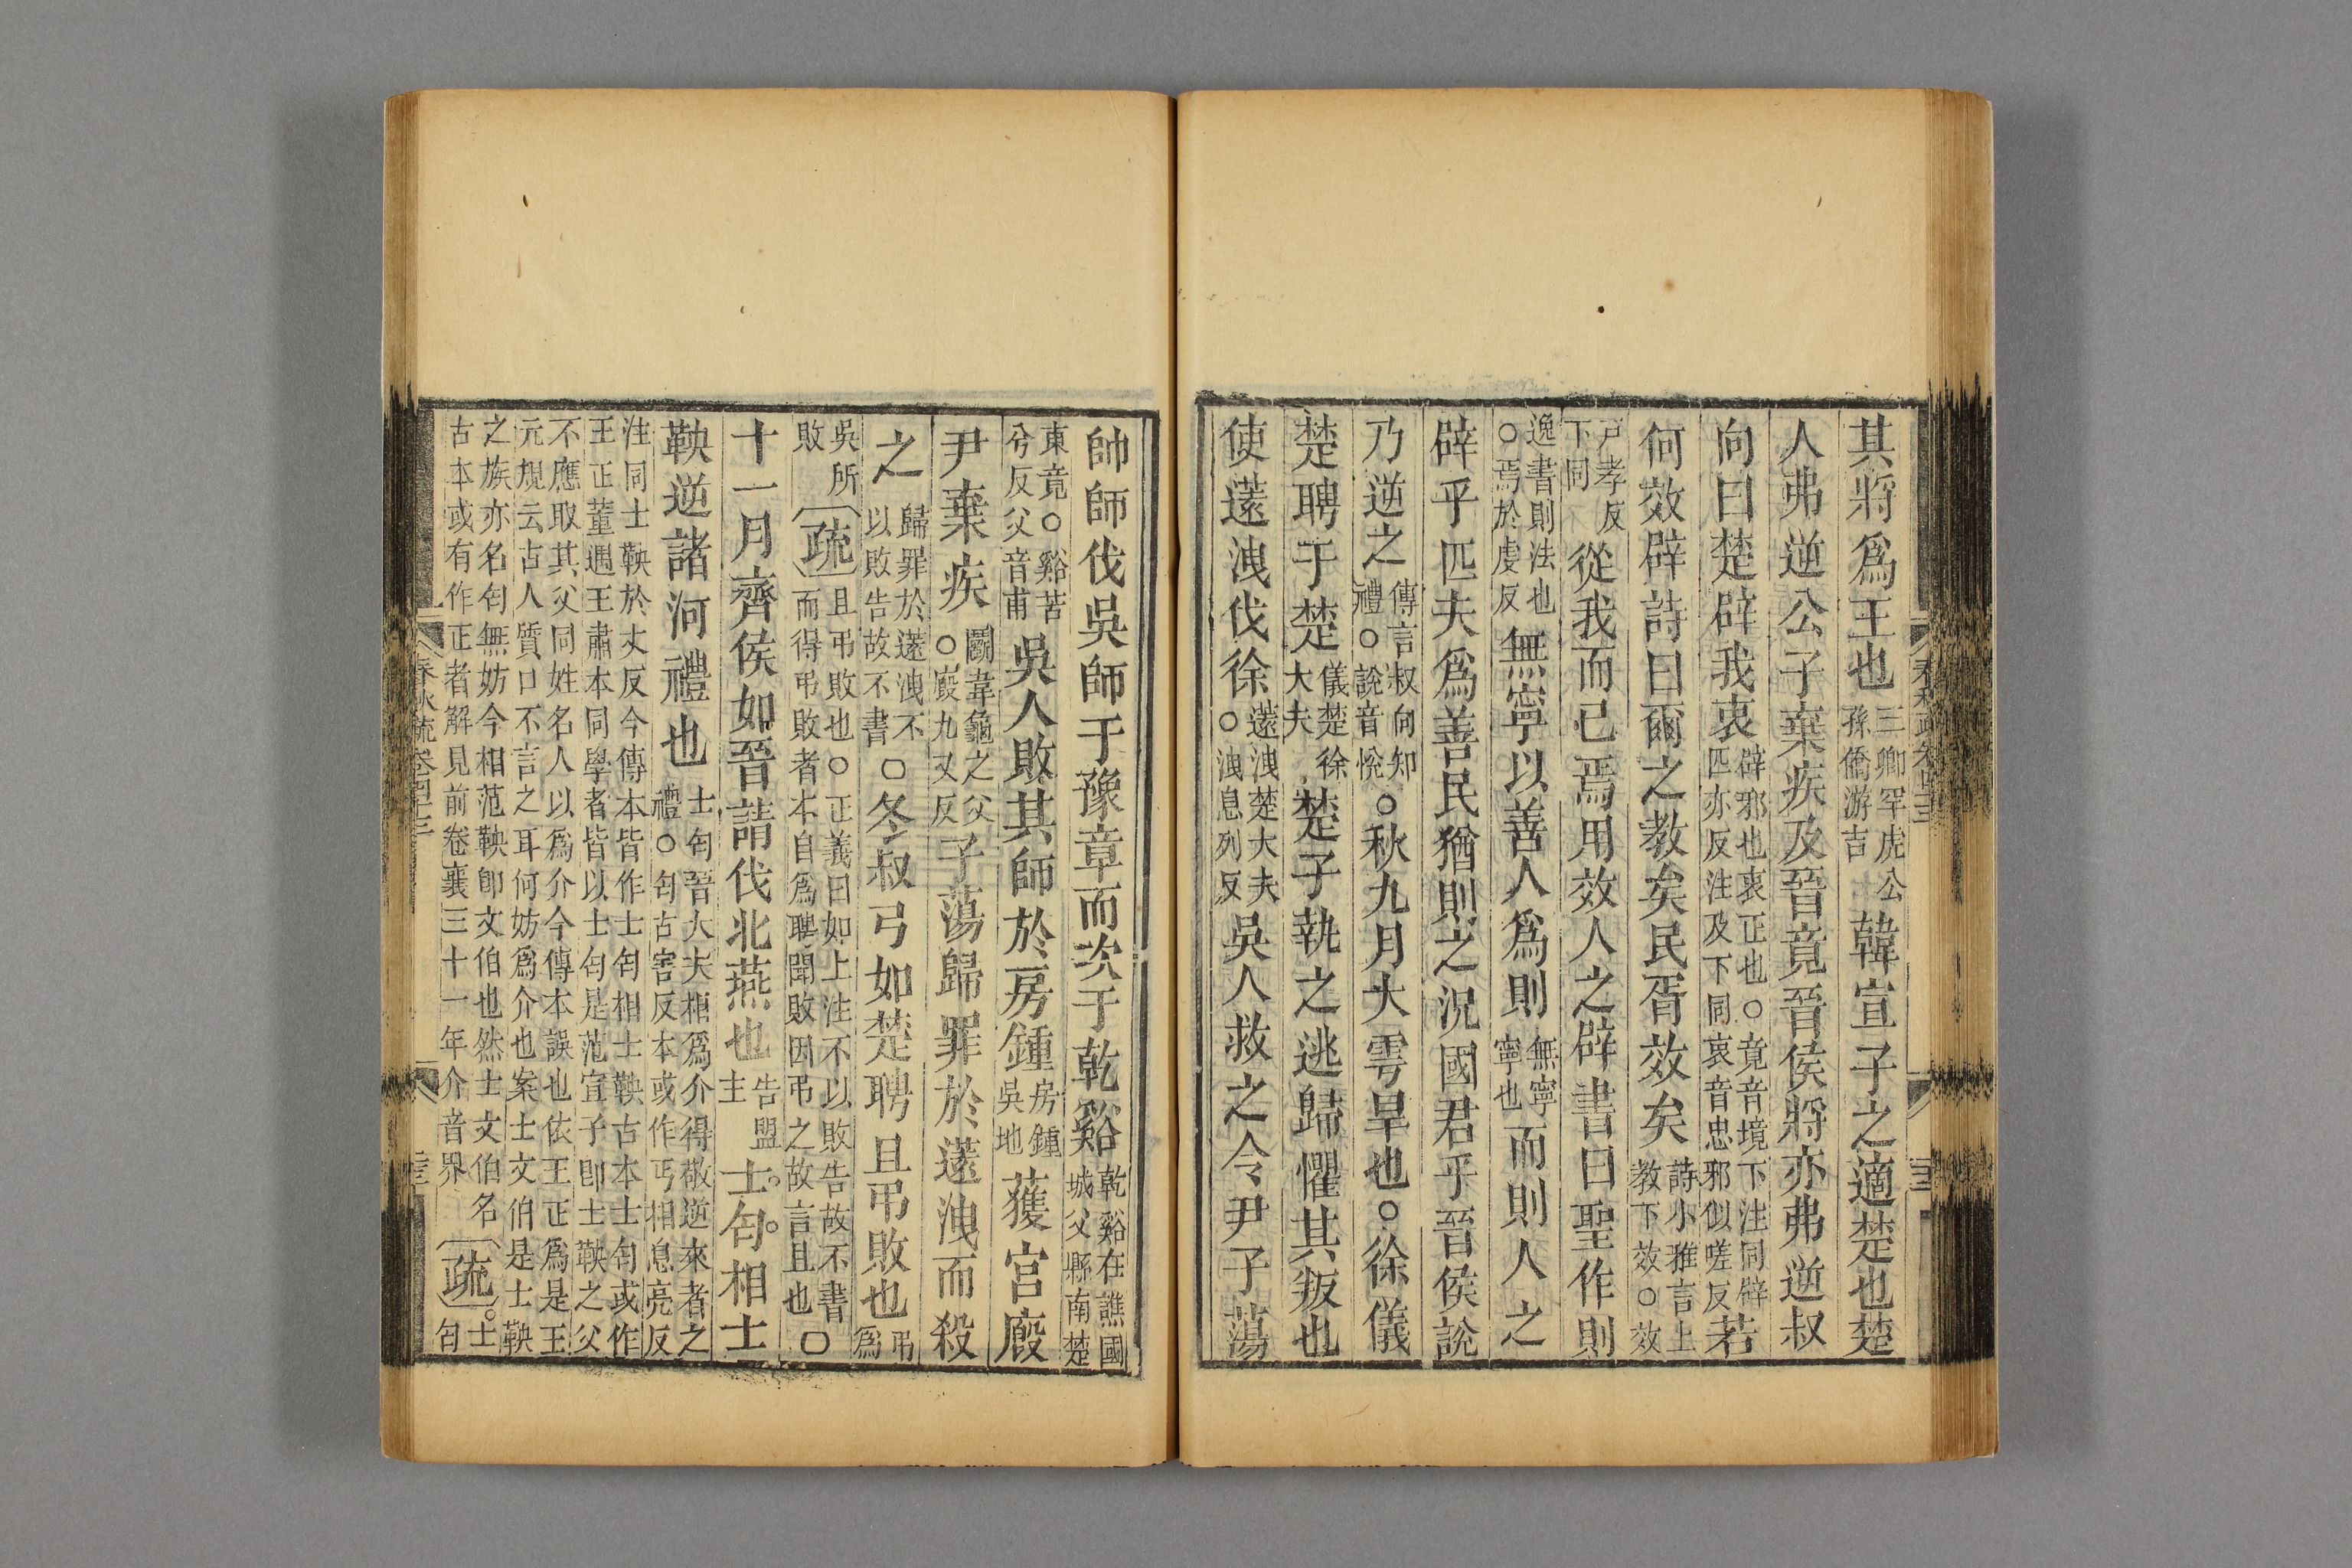 其將爲王也三卿罕虎公孫僑游吉韓宣子之適楚也楚
人弗逆公子棄疾及晉竟晉侯將亦弗逆叔
向曰楚辟我衷辟邪也衷正也○竟音境下注同辟匹亦反注及下同衷音忠邪似嗟反若
何效辟詩曰爾之教矣民胥效矣詩小雅言上教下效○效
戸孝反下同從我而已焉用效人之辟書曰聖作則
逸書則法也○焉於虔反無寧以善人爲則無寧寧也而則人之
辟乎匹夫爲善民猶則之況國君乎晉侯說
乃逆之傳言叔向知禮○說音悅○秋九月大雩旱也○徐儀
楚聘于楚儀楚徐大夫楚子執之逃歸懼其叛也
使薳洩伐徐薳洩楚大夫○洩息列反吳人救之令尹子蕩
帥師伐吳師于豫章而次于乾谿乾谿在譙國城父縣南楚
東竟○谿苦兮反父音甫吳人敗其師於房鍾房鍾吳地獲宮廄
尹棄疾鬭韋龜之父○廄九又反子蕩歸罪於薳洩而殺
之歸罪於薳洩不以敗告故不書○冬叔弓如楚聘且弔敗也弔爲
吳所敗疏且弔敗也○正義曰如上注不以敗告故不書而得弔敗者本自爲聘聞敗因弔之故言且也○
十一月齊侯如晉請伐北燕也告盟主士匄相士
鞅逆諸河禮也士匄晉大夫相爲介得敬逆來者之禮○匄古害反本或作丐相息亮反
注同士鞅於丈反今傳本皆作士匄相士鞅古本士匄或作王正董遇王肅本同學者皆以士匄是范宣子卽士鞅之父
不應取其父同姓名人以爲介今傳本誤也依王正爲是王元規云古人質口不言之耳何妨爲介也案士文伯是士鞅
之族亦名匄無妨今相范鞅卽文伯也然士文伯名古本或有作正者解見前卷襄三十一年介音界疏士匄
春秋疏卷四十三